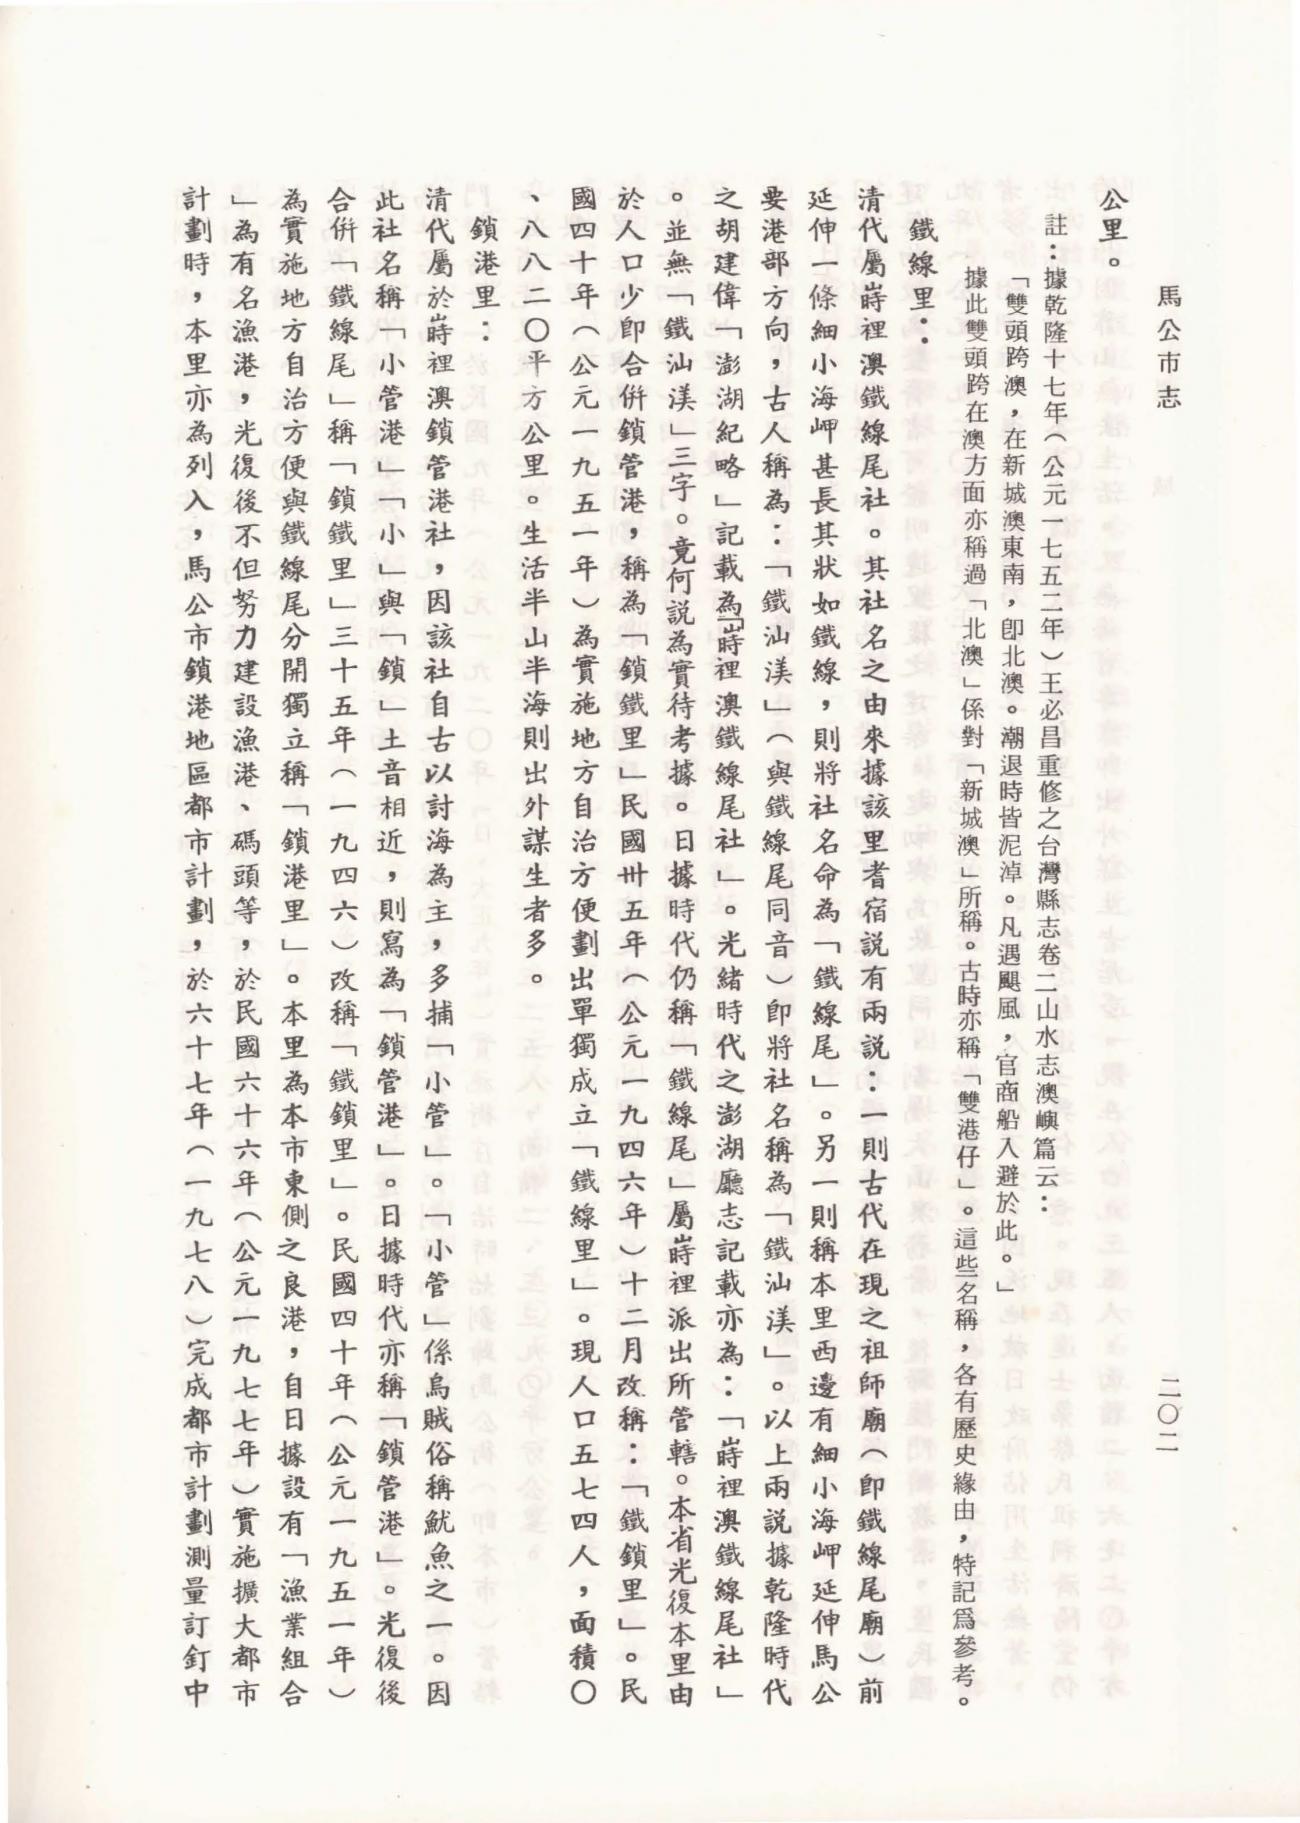 馬公市志
二〇二
公里。
註：據乾隆十七年（公元一七五二年）王必昌重修之台灣縣志卷二山水志澳嶼篇云：
「雙頭跨澳，在新城澳東南，卽北澳。潮退時皆泥淖。凡遇颶風，官商船入避於此。」
據此雙頭跨在澳方面亦稱過「北澳」係對「新城澳」所稱。古時亦稱「雙港仔」。這些名稱，各有歷史緣由，特記爲參考。
鐵線里：
清代屬嵵裡澳鐵線尾社。其社名之由來據該里耆宿説有兩説：一則古代在現之祖師廟（卽鐵線尾廟）前
延伸一條細小海岬甚長其狀如鐵線，則將社名命為「鐵線尾」。另一則稱本里西邊有細小海岬延伸馬公
要港部方向，古人稱為：「鐵汕渼」（與鐵線尾同音）卽將社名稱為「鐵汕渼」。以上兩説據乾隆時代
之胡建偉「澎湖紀略」記載為「嵵裡澳鐵線尾社」。光緒時代之澎湖廳志記載亦為：「嵵裡澳鐵線尾社」
。並無「鐵汕渼」三字。竟何説為實待考據。日據時代仍稱「鐵線尾」屬嵵裡派出所管轄。本省光復本里由
於人口少卽合倂鎖管港，稱為「鎖鐵里」民國卅五年（公元一九四六年）十二月改稱：「鐵鎖里」。民
國四十年（公元一九五一年）為實施地方自治方便劃出單獨成立「鐵線里」。現人口五七四人，面積〇
、八八二〇平方公里。生活半山半海則出外謀生者多。
鎖港里：
清代屬於嵵裡澳鎖管港社，因該社自古以討海為主，多捕「小管」。「小管」係烏賊俗稱魷魚之一。因
此社名稱「小管港」「小」與「鎖」土音相近，則寫為「鎖管港」。日據時代亦稱「鎖管港」。光復後
合倂「鐵線尾」稱「鎖鐵里」三十五年（一九四六）改稱「鐵鎖里」。民國四十年（公元一九五一年）
為實施地方自治方便與鐵線尾分開獨立稱「鎖港里」。本里為本市東側之良港，自日據設有「漁業組合
」為有名漁港，光復後不但努力建設漁港、碼頭等，於民國六十六年（公元一九七七年）實施擴大都市
計劃時，本里亦為列入，馬公市鎖港地區都市計劃，於六十七年（一九七八）完成都市計劃測量訂釘中